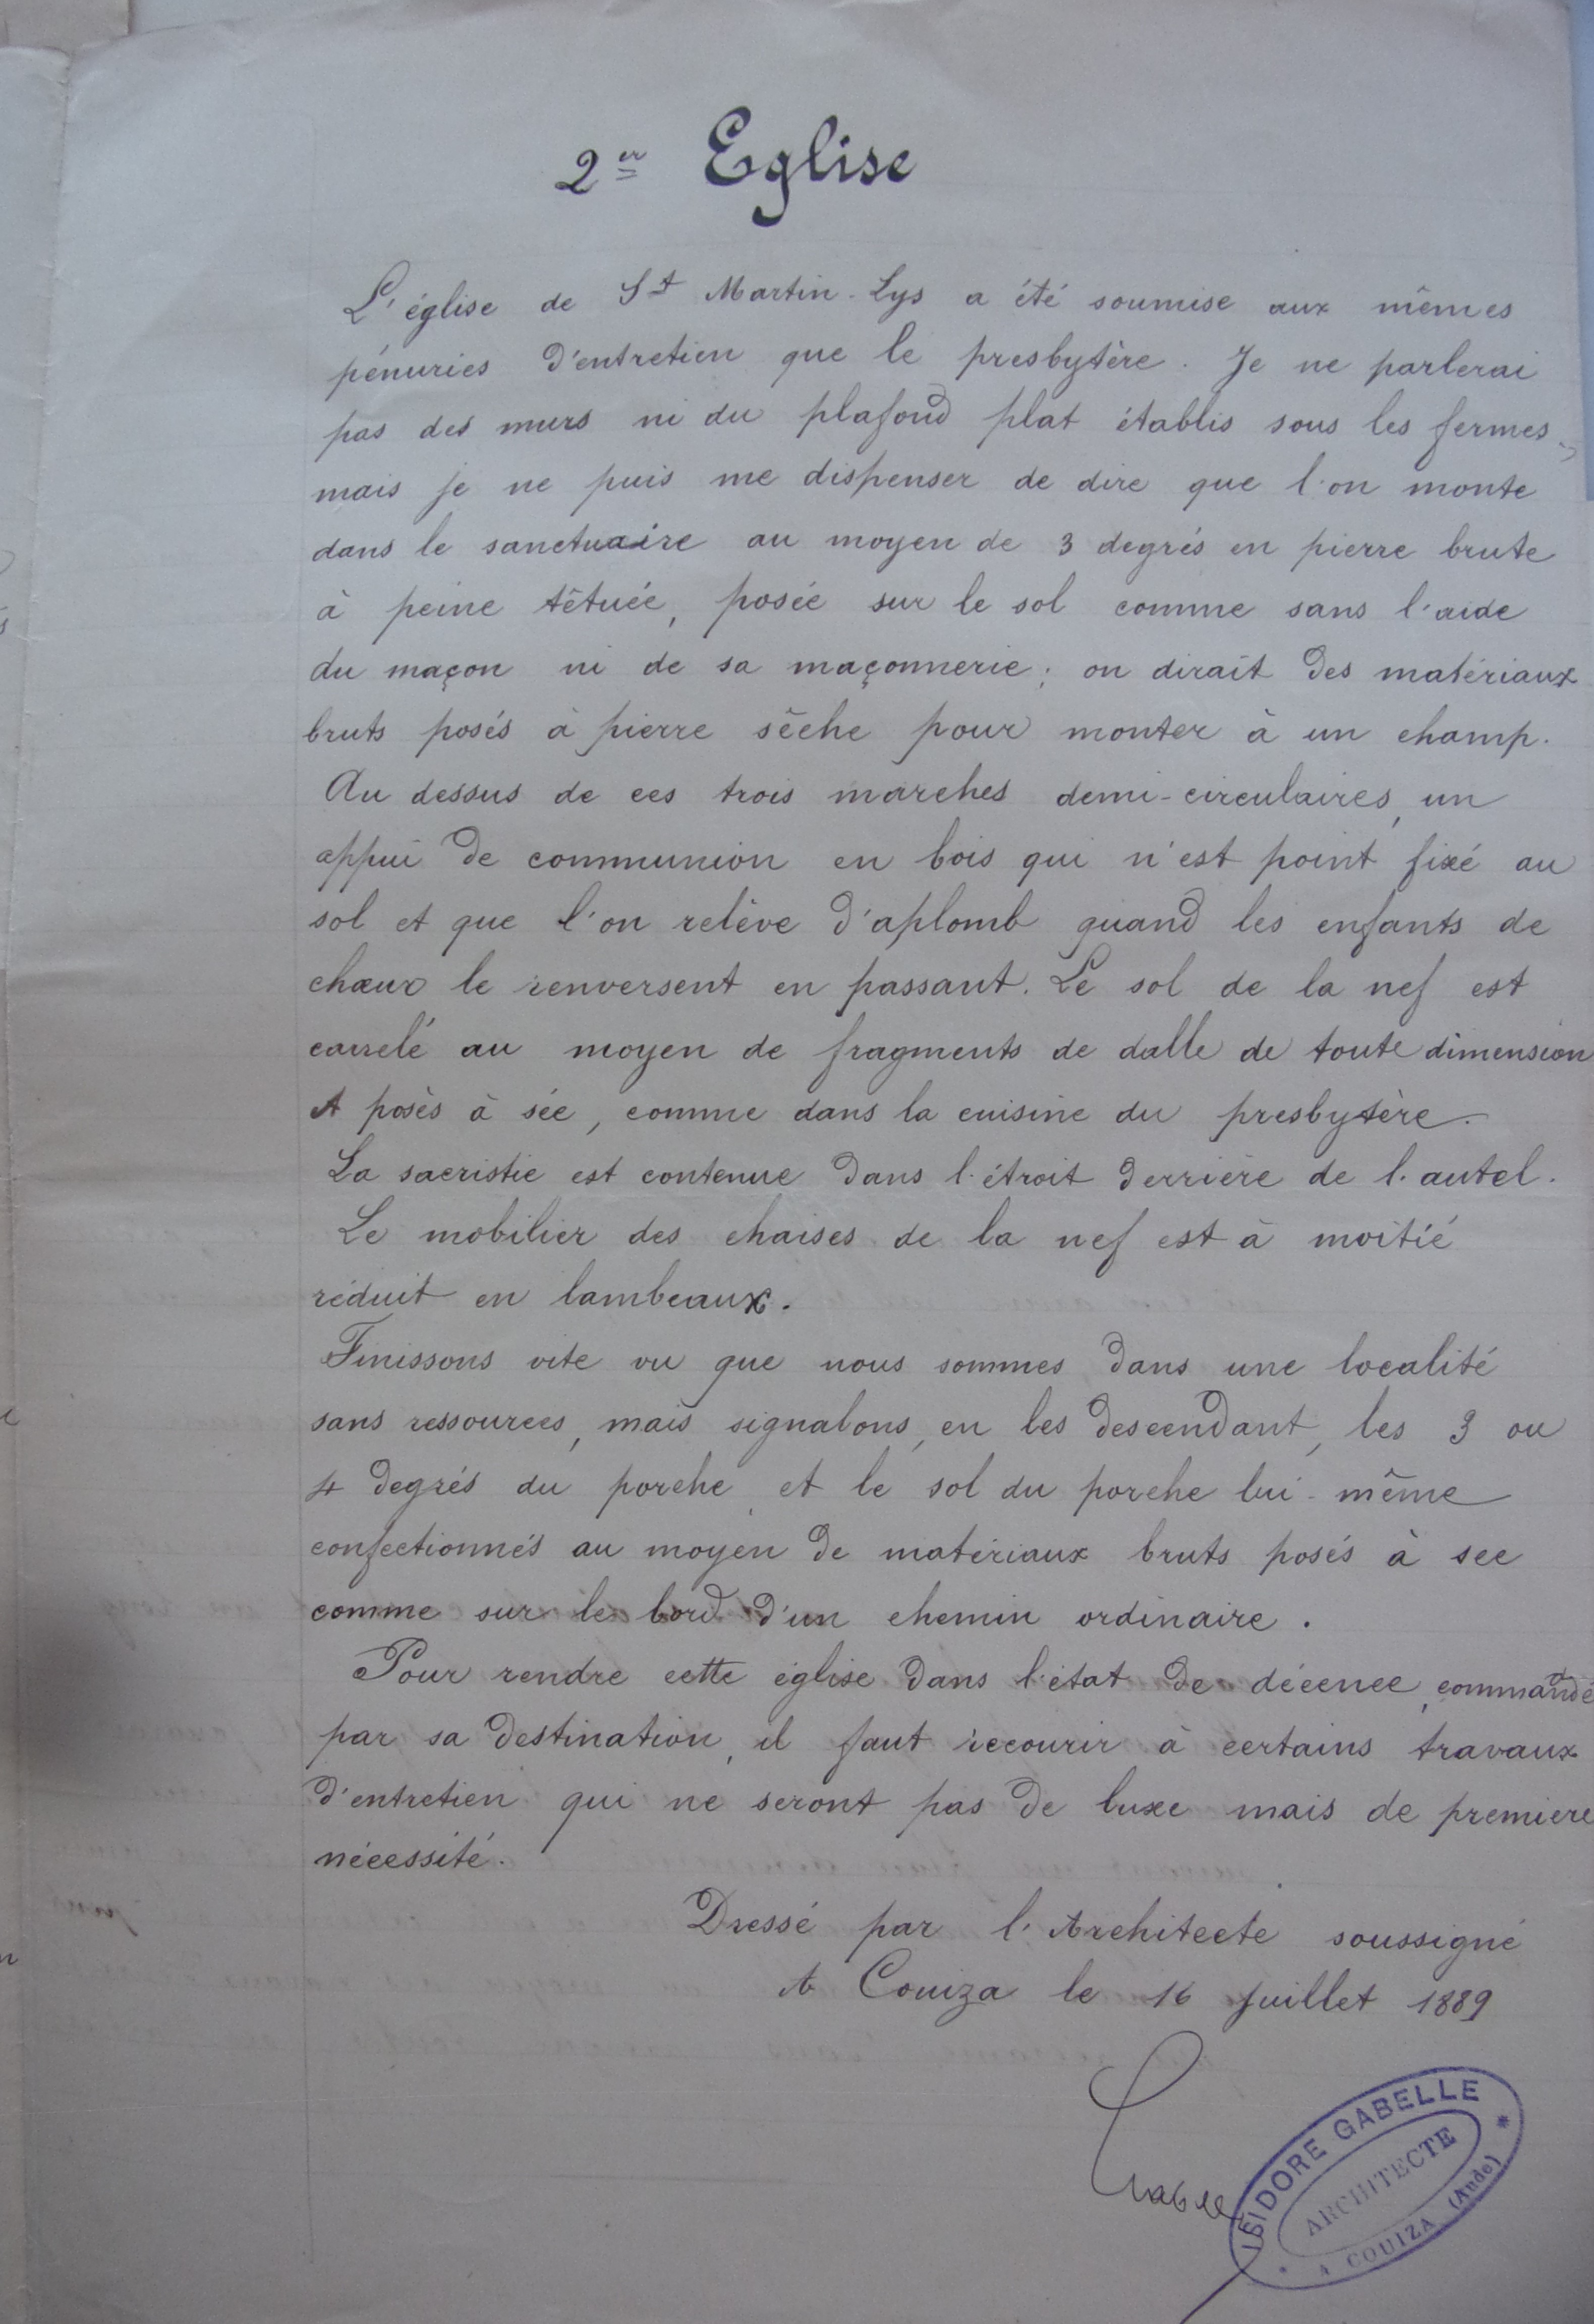 2er Eglise
L'église de St Martin-Lys a été soumise aux mêmes
pénuries d'entretien que le presbytère. Je ne parlerai
pas des murs ni du plafond plat établis sous les fermes,
mais je ne puis me dispenser de dire que l'on monte
dans le sanctuaire au moyen de 3 degrés en pierre brute
à peine têtuée, posée sur le sol comme sans l'aide
du maçon ni de sa maçonnerie; on dirait des matériaux
bruts posés à pierre sèche pour monter à un champ.
Au dessus de ces trois marches demi-circulaires, un
appui de communion en bois qui n'est point fixé au
sol et que l'on relève d'aplomb quand les enfants de
chœur le renversent en passant. Le sol de la nef est
carrelé au moyen de fragments de dalle de toute dimension
et posés à séc, comme dans la cuisine du presbytère.
La sacristie est contenue dans l'étroit derrière de l'autel.
Le mobilier des chaises de la nef est à moitié
réduit en lambeaux.
Finissons vite vu que nous sommes dans une localité
sans ressources, mais signalons, en les descendant, les 3 ou
4 degrés du porche et le sol du porche lui-même
confectionnés au moyen de matériaux bruts posés à sec
comme sur le bord d'un chemin ordinaire.
Pour rendre cette église dans l'état de décence, commandé
par sa destination, il faut recourir à certains travaux
d'entretien qui ne seront pas de luxe mais de première
nécessité.
Dressé par l'Architecte soussigné
A Couiza le 16 Juillet 1889
Gabelle
ISIDORE GABELLE
ARCHITECTE
A COUIZA (Aude)